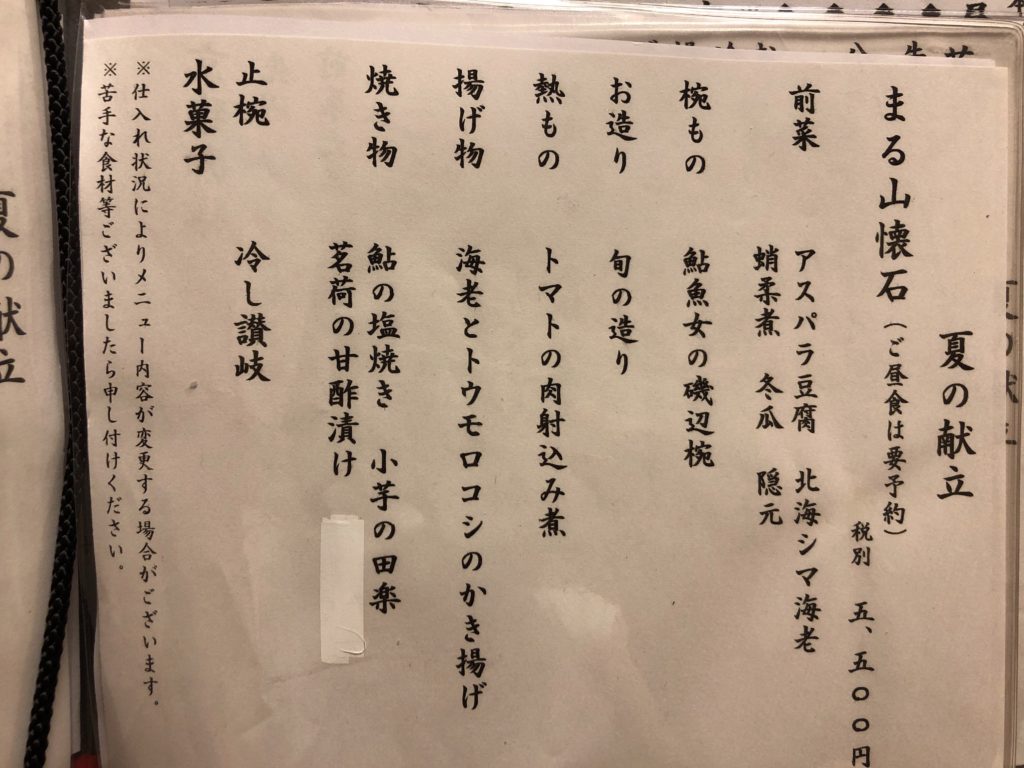 夏の献立
まる山懐石（ご昼食は要予約）
税別　五、五〇〇円
前菜　アスパラ豆腐　北海シマ海老
蛸柔煮　冬瓜　隠元
椀もの　鮎魚女の磯辺椀
お造り　旬の造り
熱もの　トマトの肉射込み煮
揚げ物　海老とトウモロコシのかき揚げ
焼き物　鮎の塩焼き　小芋の田楽
茗荷の甘酢漬け
止椀　冷し讃岐
水菓子
※仕入れ状況によりメニュー内容が変更する場合がございます。
※苦手な食材等ございましたら申し付けください。
夏の献立